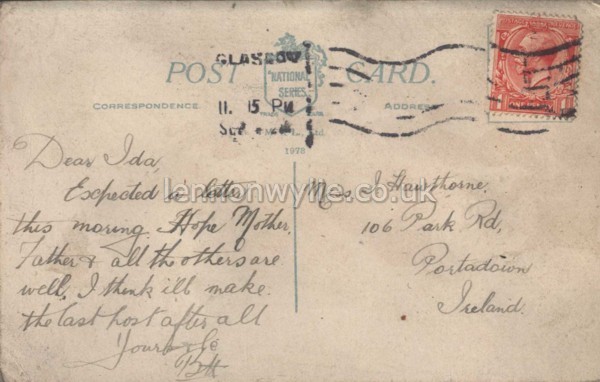 GLASGOW
POST CARD.
NATIONAL
SERIES
CORRESPONDENCE
ADDRESS
11.15 PM
1978
ONE PENNY
Dear Ida,
Expected a latter
this moring. Hope Mother,
Father & all the others are
well, I think i'll make
the last post after all
Yours &c
BH
Miss I. Hawthorne,
106 Park Rd,
Portadown
Ireland.
lennonwylie.co.uk